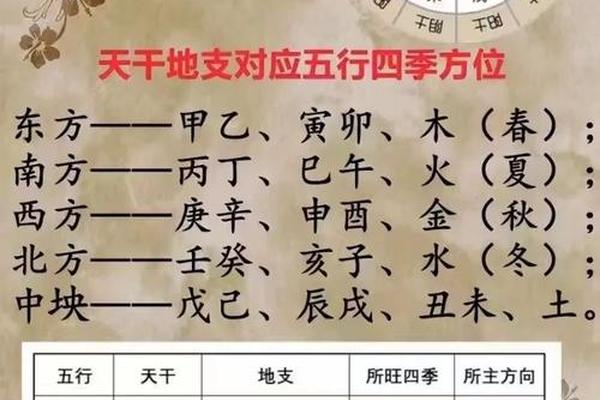 阳土
阴土
天干地支对应五行四季方位
东方——甲乙、寅卯、木（春）；
南方——丙丁、巳午、火（夏）；
西方——庚辛、申酉、金（秋）；
北方——壬癸、亥子、水（冬）；
中坱——戊己、辰戌、丑未、土。
五行 天干 地支 所旺四季 所主方向